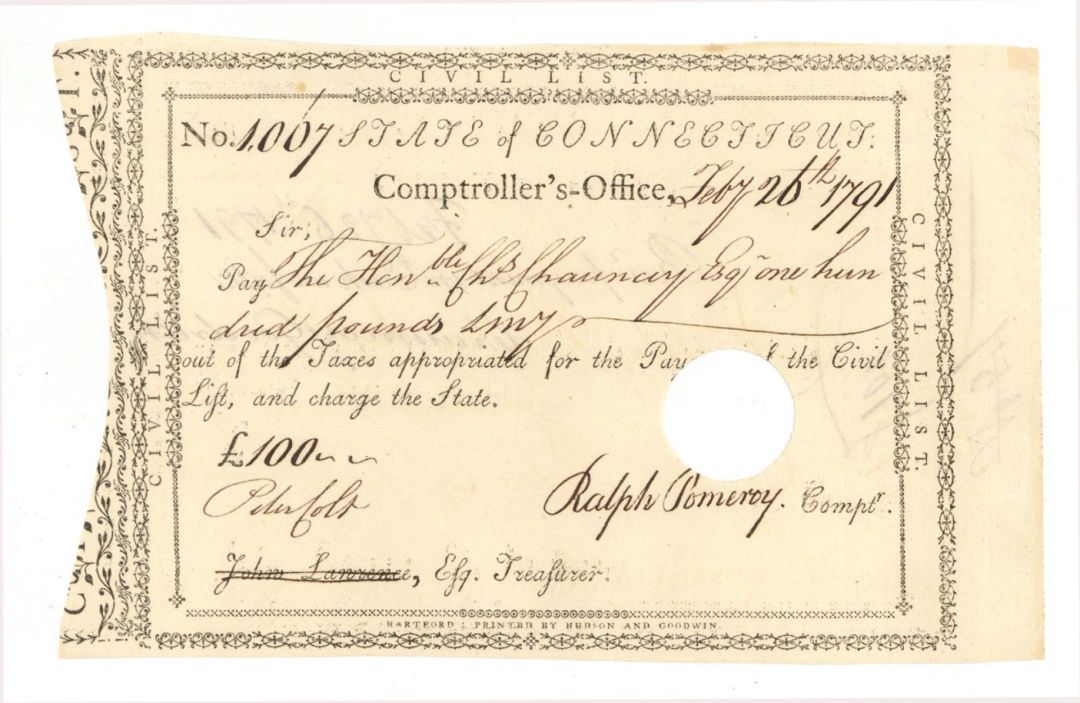 CIVIL LIST.
No. 1,067 STATE of CONNECTICUT.
Comptroller's-Office, Feby 26th 1791
Sir,
Pay The Honble Chs Chauncey Esqr one hun
dred pounds Lmy
out of the Taxes appropriated for the Pay the Civil
List, and charge the State.
£100
Peter Colt
Ralph Pomeroy. Comptr.
John Lawrence, Esq. Treasurer.
HARTFORD: PRINTED BY HUDSON AND GOODWIN.
CIVIL LIST.
CIVIL LIST.